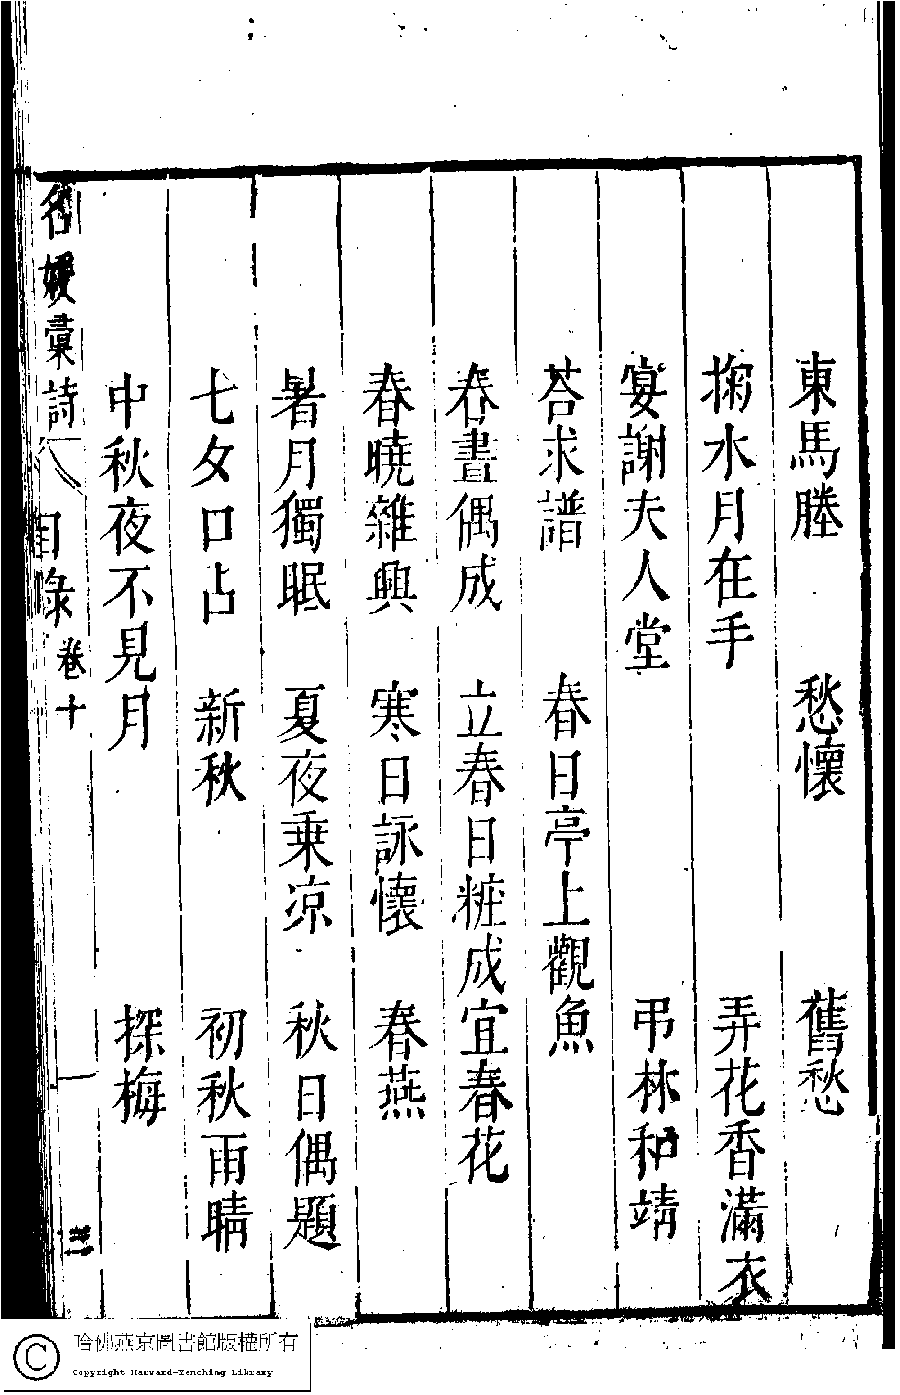 東馬塍　愁懷　舊愁
掬水月在手　弄花香滿衣
宴謝夫人堂　弔林和靖
荅求譜　春日亭上觀魚
春晝偶成　立春日粧成宜春花
春曉雜興　寒日詠懷　春燕
暑月獨眠　夏夜乗凉　秋日偶題
七夕口占　新秋　初秋雨晴
中秋夜不見月　探梅
名媛彙詩　目錄　卷十
哈佛燕京圖書館版權所有
Copyright Harvard-Yenching Library